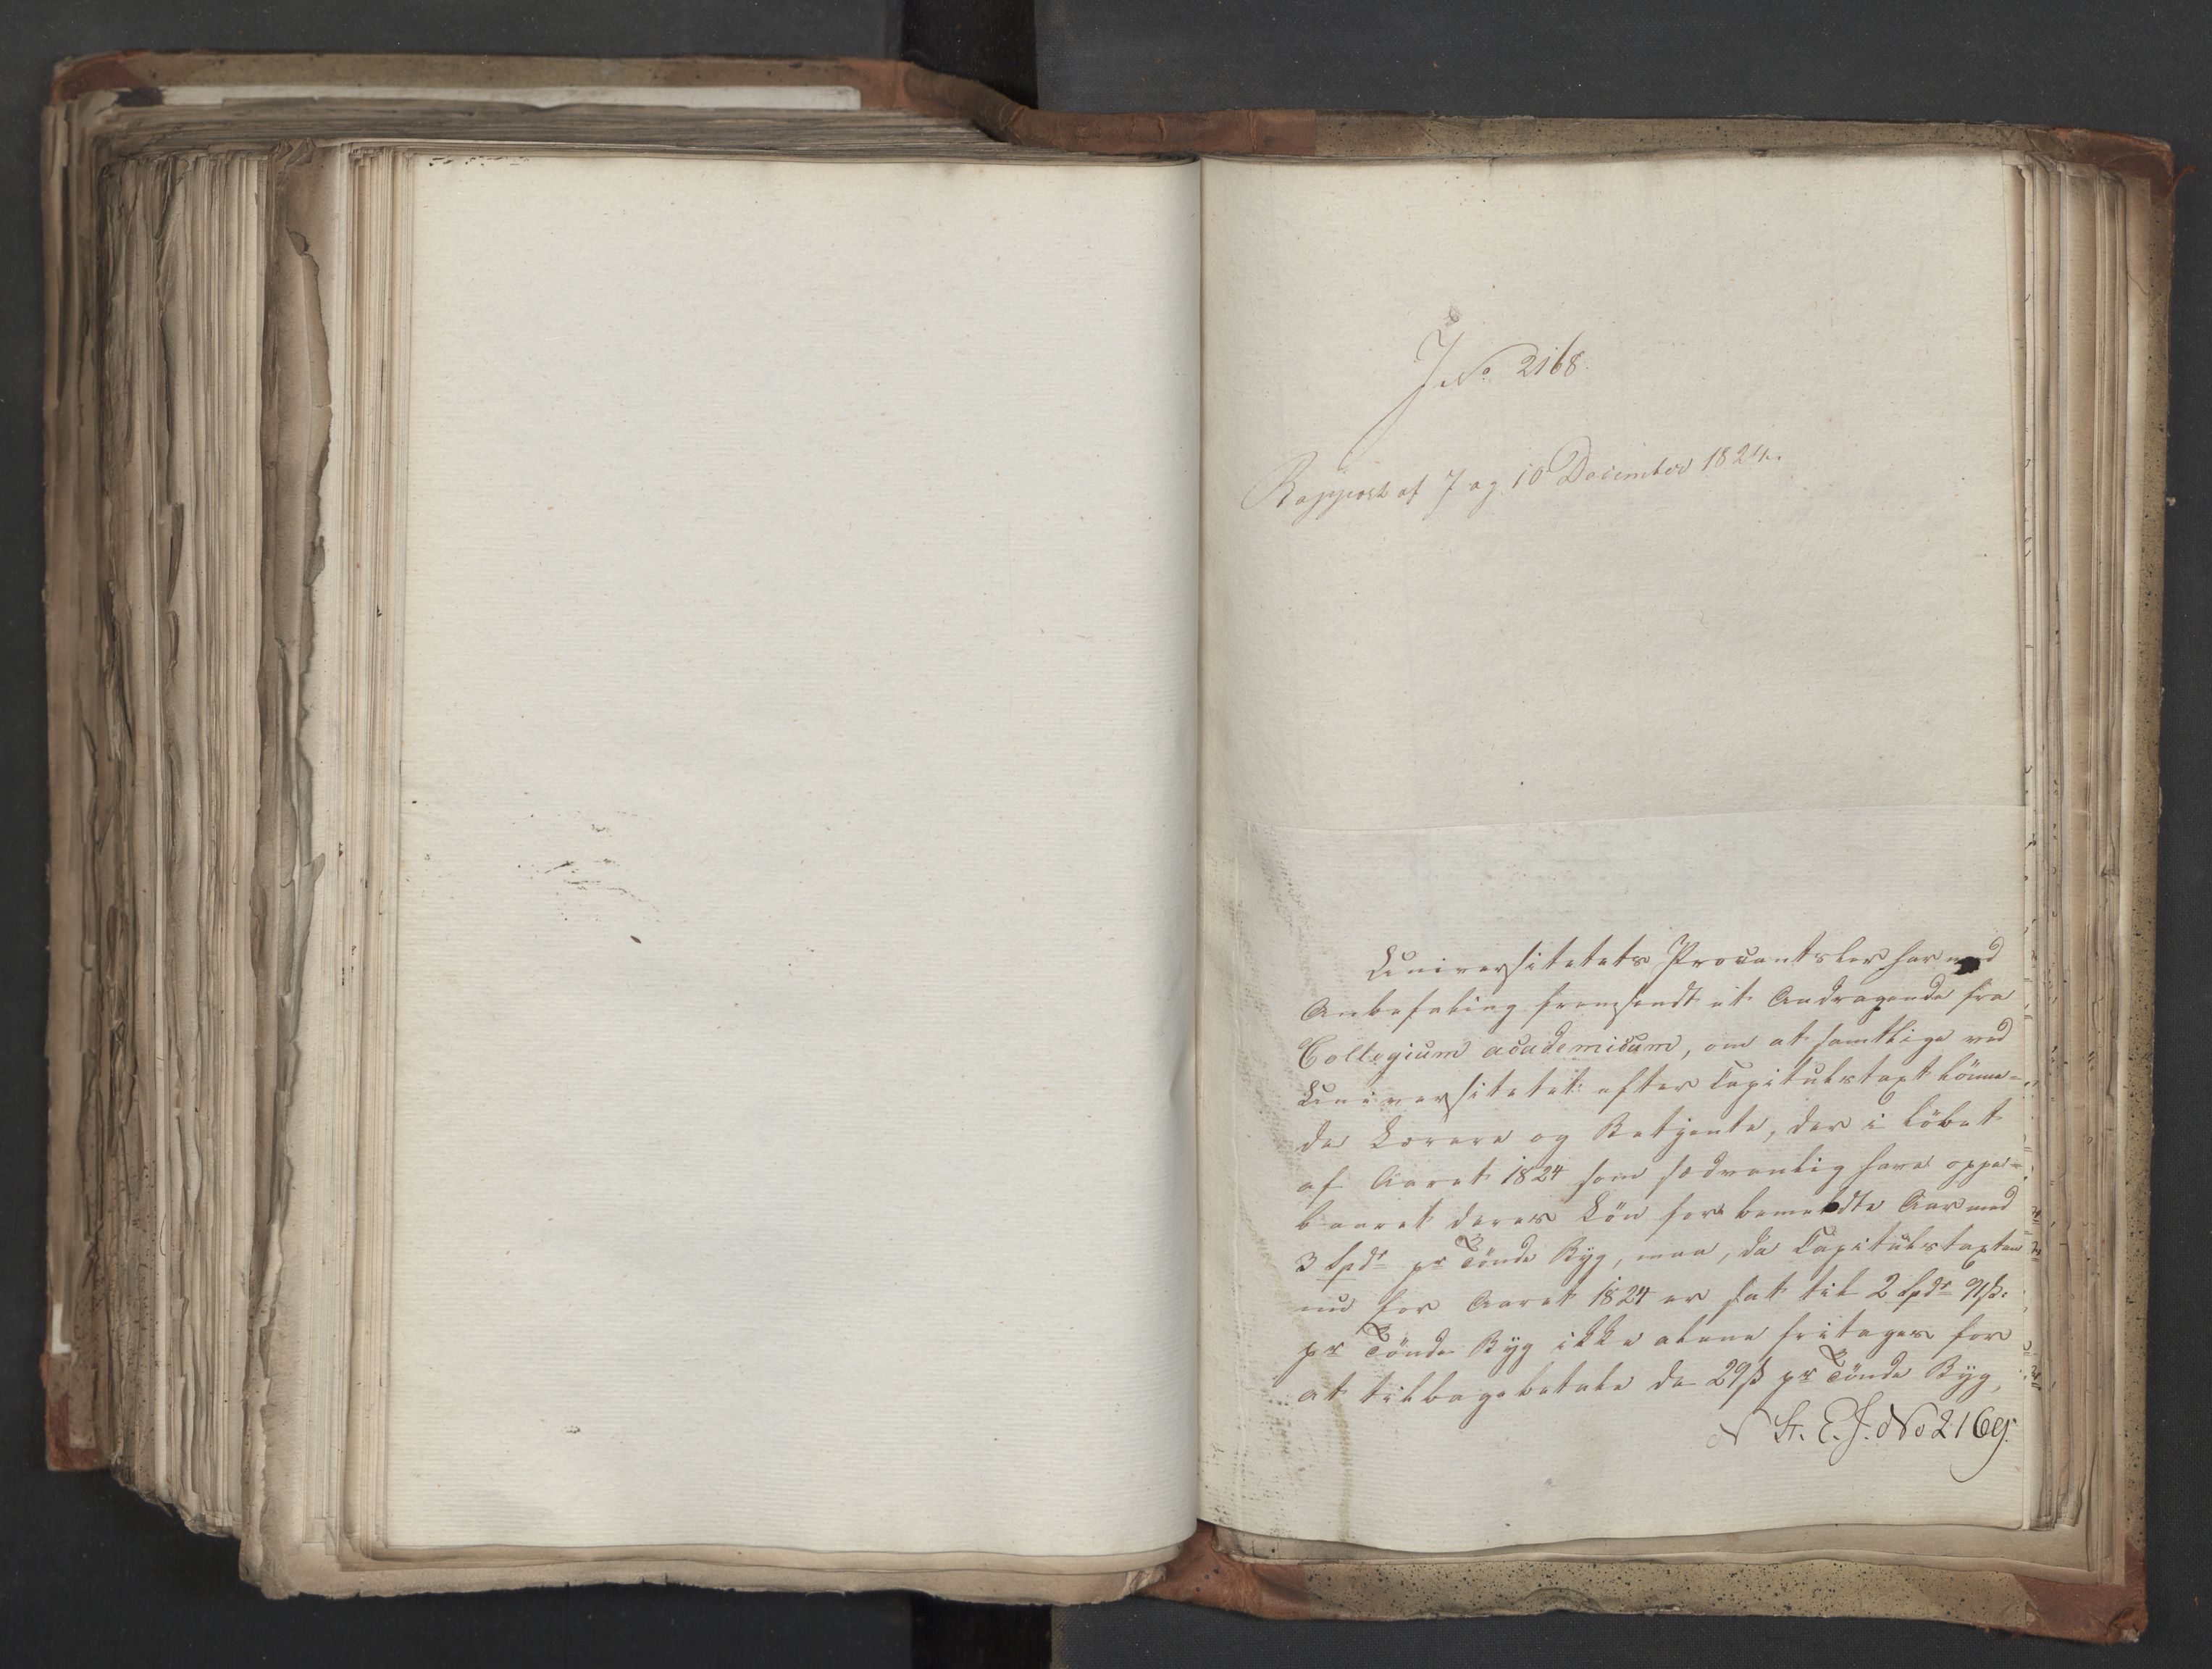 J. No 2168.
Rapport af 7 og 10 December 1824.
Universitetets Procantsler har med
Anbefaling fremsendt et Andragende fra
Collegium academicum, om at samtlige ved
Universitetet efter Capitulstaxt lönne-
de Lærere og Betjente, der i Löbet
af Aaret 1824 som sædvanlig have oppe-
baaret deres Lön for bemeldte Aar med
3 Spdr pr Tönde Byg, maa, da Capitulstaxten
nu for Aaret 1824 er sat til 2 Spdr 91 ß.
pr Tönde Byg ikke alene fritages for
at tilbagebetale de 29 ß pr Tönde Byg,
E. J. No 2169.